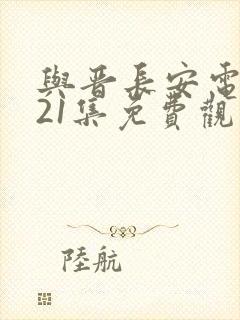 與晋長安電
21集免費觀
陸航